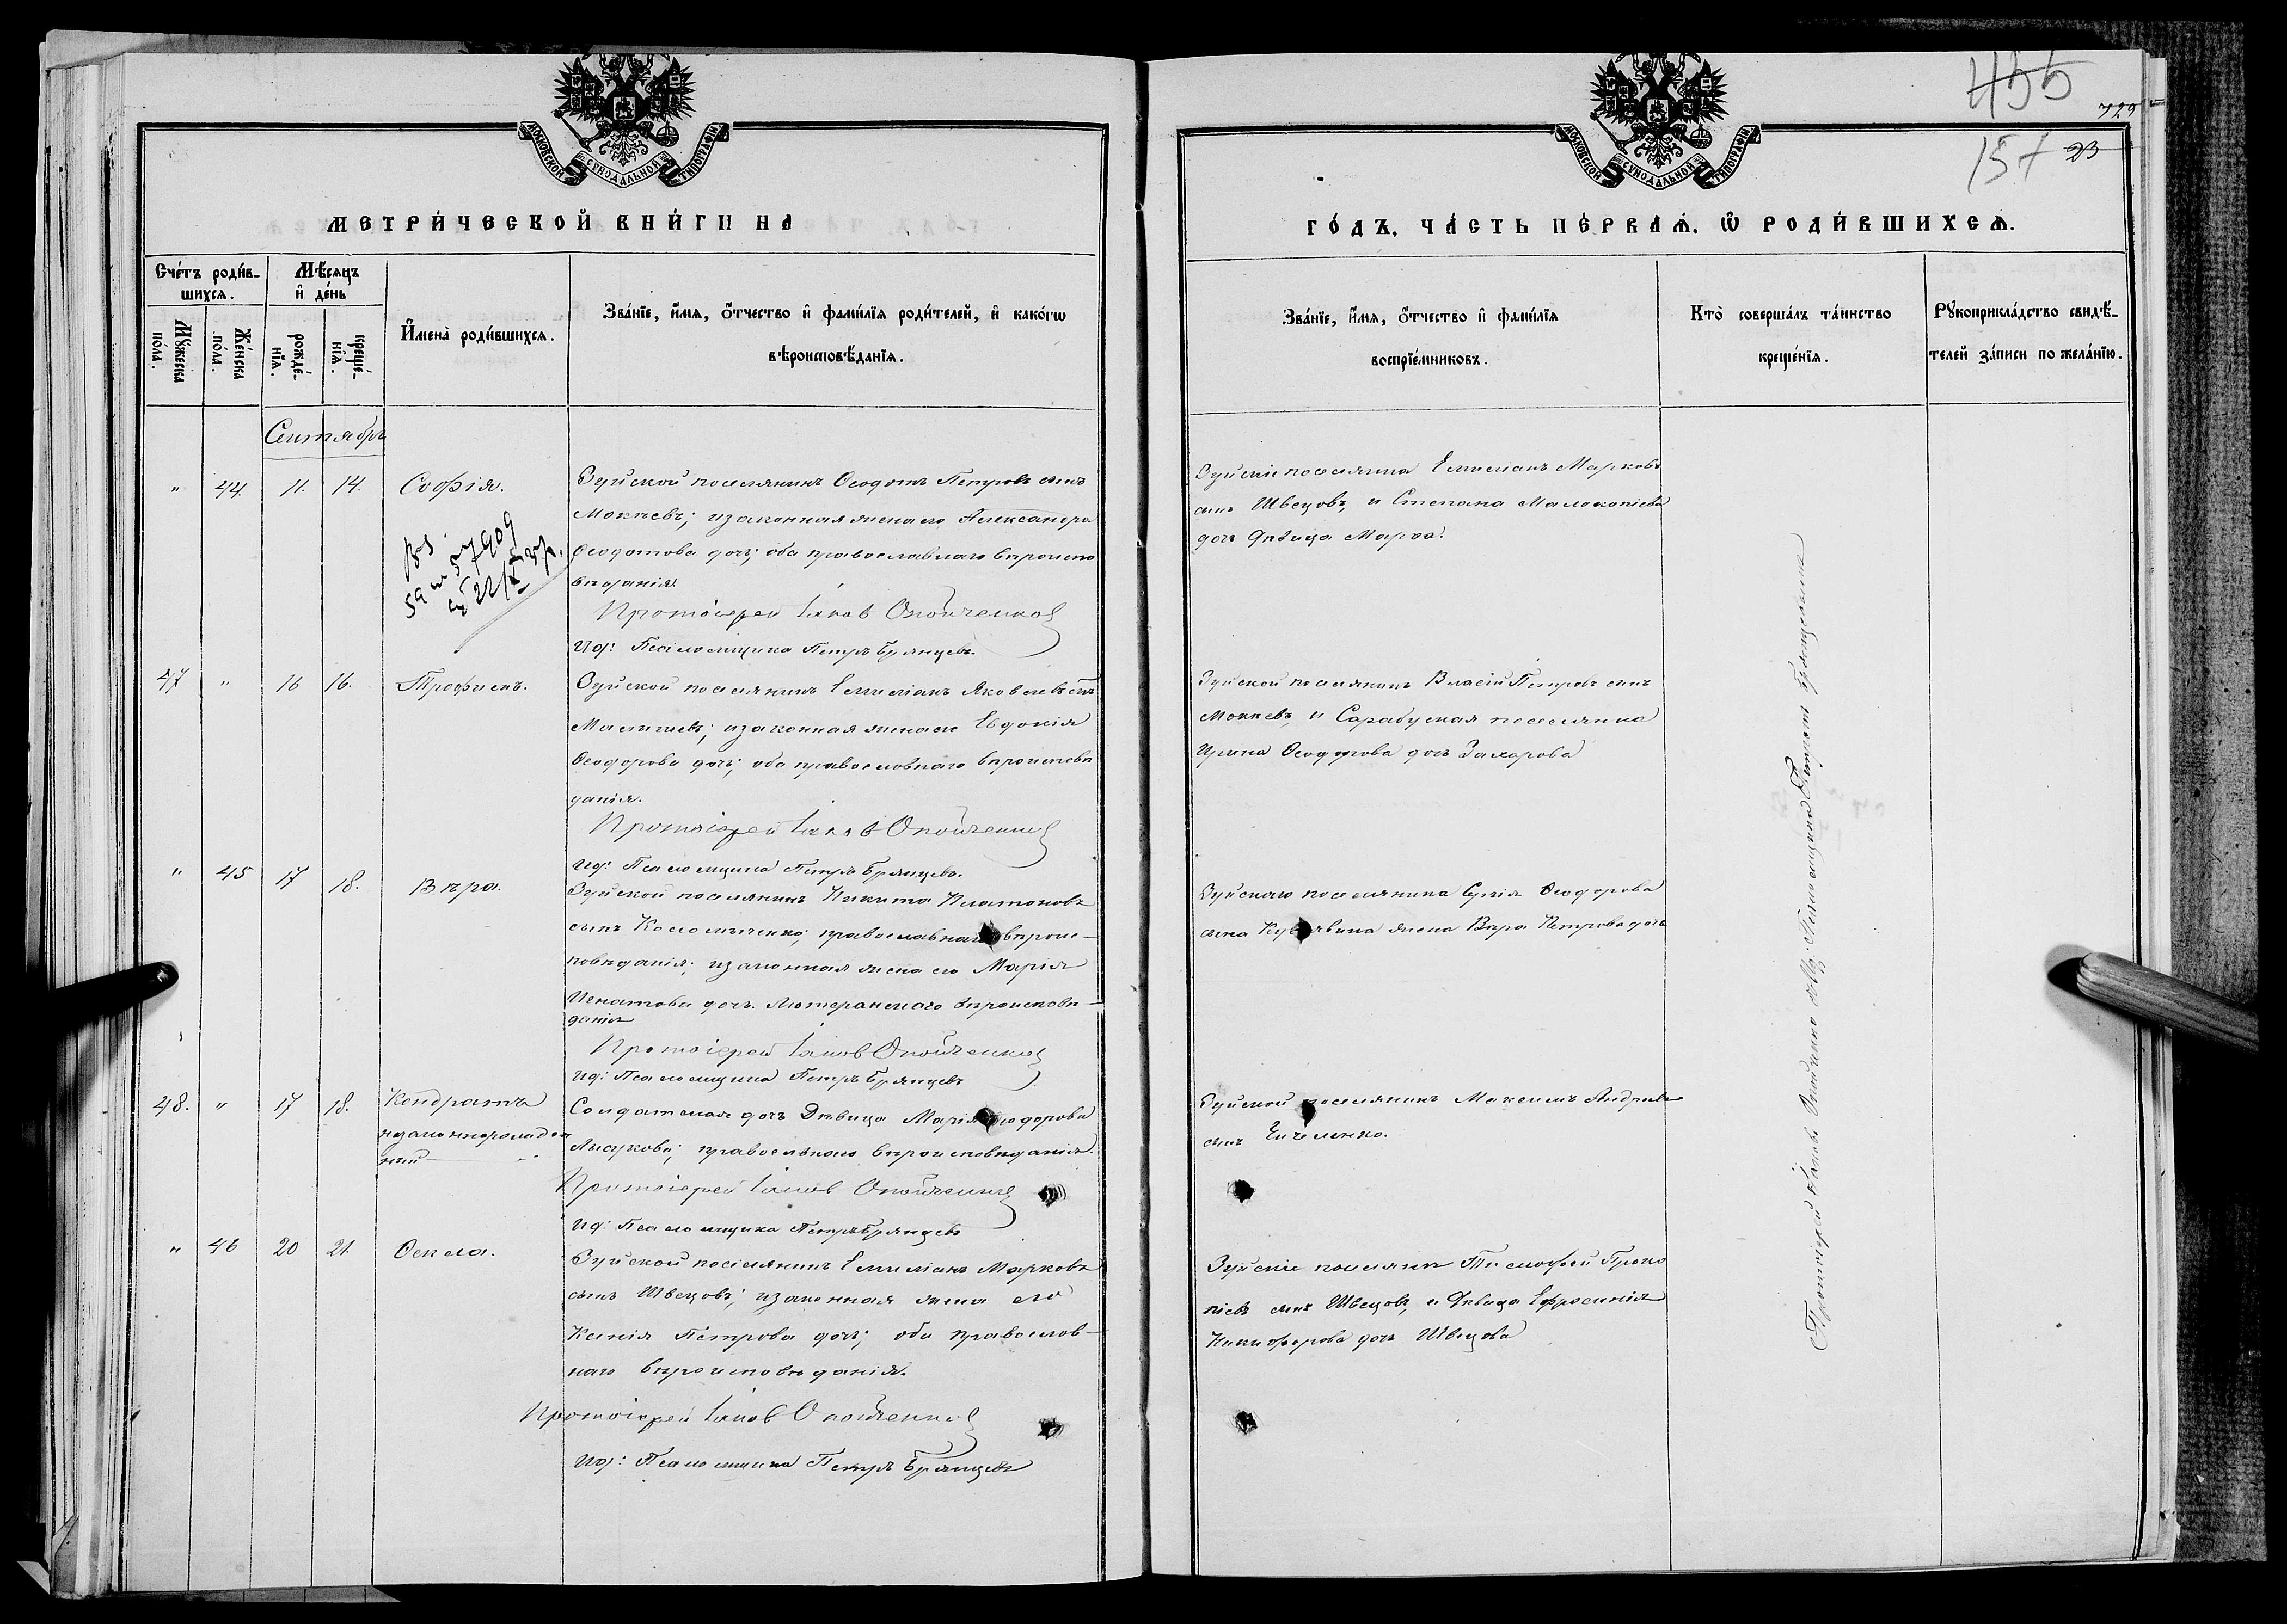 МОСКОВСКОЙ СѴНОДАЛЬНОЙ ТИПОГРАФІИ
МЕТРИ́ЧЕСКОЙ КНИ́ГИ НА
Сче́тъ роди́в-
шихсѧ.
Мѣ́сяцъ
и҆ де́нь
Мꙋ́жеска
по́ла.
Же́нска
по́ла.
рожде́-
нїѧ.
креще́-
нїѧ.
И҆мена̀ роди́вшихсѧ.
Зва́нїе, и҆́мѧ, ѻ҆́тчество и҆ фами́лїѧ роди́телей, и҆ како́гѡ
вѣроисповѣ́данїѧ.
Сентябрь
" 44. 11. 14. Софія.
Зуйской поселянинъ Ѳеодотъ Петровъ сынъ
Мокѣевъ; и законная жена его Александра
Ѳеодотова дочь; оба православнаго вѣроиспо
вѣданія
Протоіерей Іаковъ Опойченко
Ид: Псаломщика Петръ Брянцевъ.
47 " 16 16. Трофимъ.
Зуйской поселянинъ Емиліанъ Яковлевъ сынъ
и законная жена его Евдокія
Ѳеодорова дочь; оба православнаго вѣроисповѣ
данія.
Протоіерей Іаковъ Опойченко
Ид: Псаломщика Петръ Брянцевъ.
" 45 17 18. Вѣра.
Зуйской поселянинъ Никита Платоновъ
сынъ православнаго вѣроис-
повѣданія; и законная жена его Марія
Игнатова дочь. Лютеранскаго вѣроисповѣ-
данія
Протоіерей Іаковъ Опойченко
Ид: Псаломщика Петръ Брянцевъ
48. " 17 18. Кондратъ
незаконнорожден
ный
Солдатская дочь Дѣвица Марія Ѳеодорова
православнаго вѣроисповѣданія.
Протоіерей Іаковъ Опойченко
Ид: Псаломщика Петръ Брянцевъ
" 46 20 21. Ѳекла.
Зуйской поселянинъ Емиліанъ Марковъ
сынъ Швецовъ; и законная жена его
Ксенія Петрова дочь; оба православ-
наго вѣроисповѣданія.
Протоіерей Іаковъ Опойченко
Ид: Псаломщика Петръ Брянцевъ
455
729
157 23
МОСКОВСКОЙ СѴНОДАЛЬНОЙ ТИПОГРАФІИ
ГО́ДЪ, ЧА́СТЬ ПЕ́РВАѦ, Ѽ РОДИ́ВШИХСѦ.
Зва́нїе, и҆́мѧ, ѻ҆́тчество и҆ фами́лїѧ
воспрїе́мниковъ.
Кто̀ соверша́лъ та́инство
креще́нїѧ.
Рꙋкоприкла́дство свидѣ́-
телей за́писи по жела́нїю.
Зуйскіе поселяне Емиліанъ Марковъ
сынъ Швецовъ, и Степана
дочь дѣвица Марѳа.
Зуйской поселянинъ Власій Петровъ сынъ
Мокѣевъ, и Сарабузская поселянка
Ирина Ѳеодотова дочь Захарова
Зуйскаго поселянина Сергія Ѳеодорова
сына жена Вѣра Петрова дочь
Зуйской поселянинъ Максимъ Андреевъ
сынъ
Зуйскіе поселяне Тимофей Проко
піевъ сынъ Швецовъ, и дѣвица Ефросинія
Никифорова дочь Швецова
Протоіерей Іаковъ Опойченко съ Ид: Псаломщика Петромъ Брянцевымъ